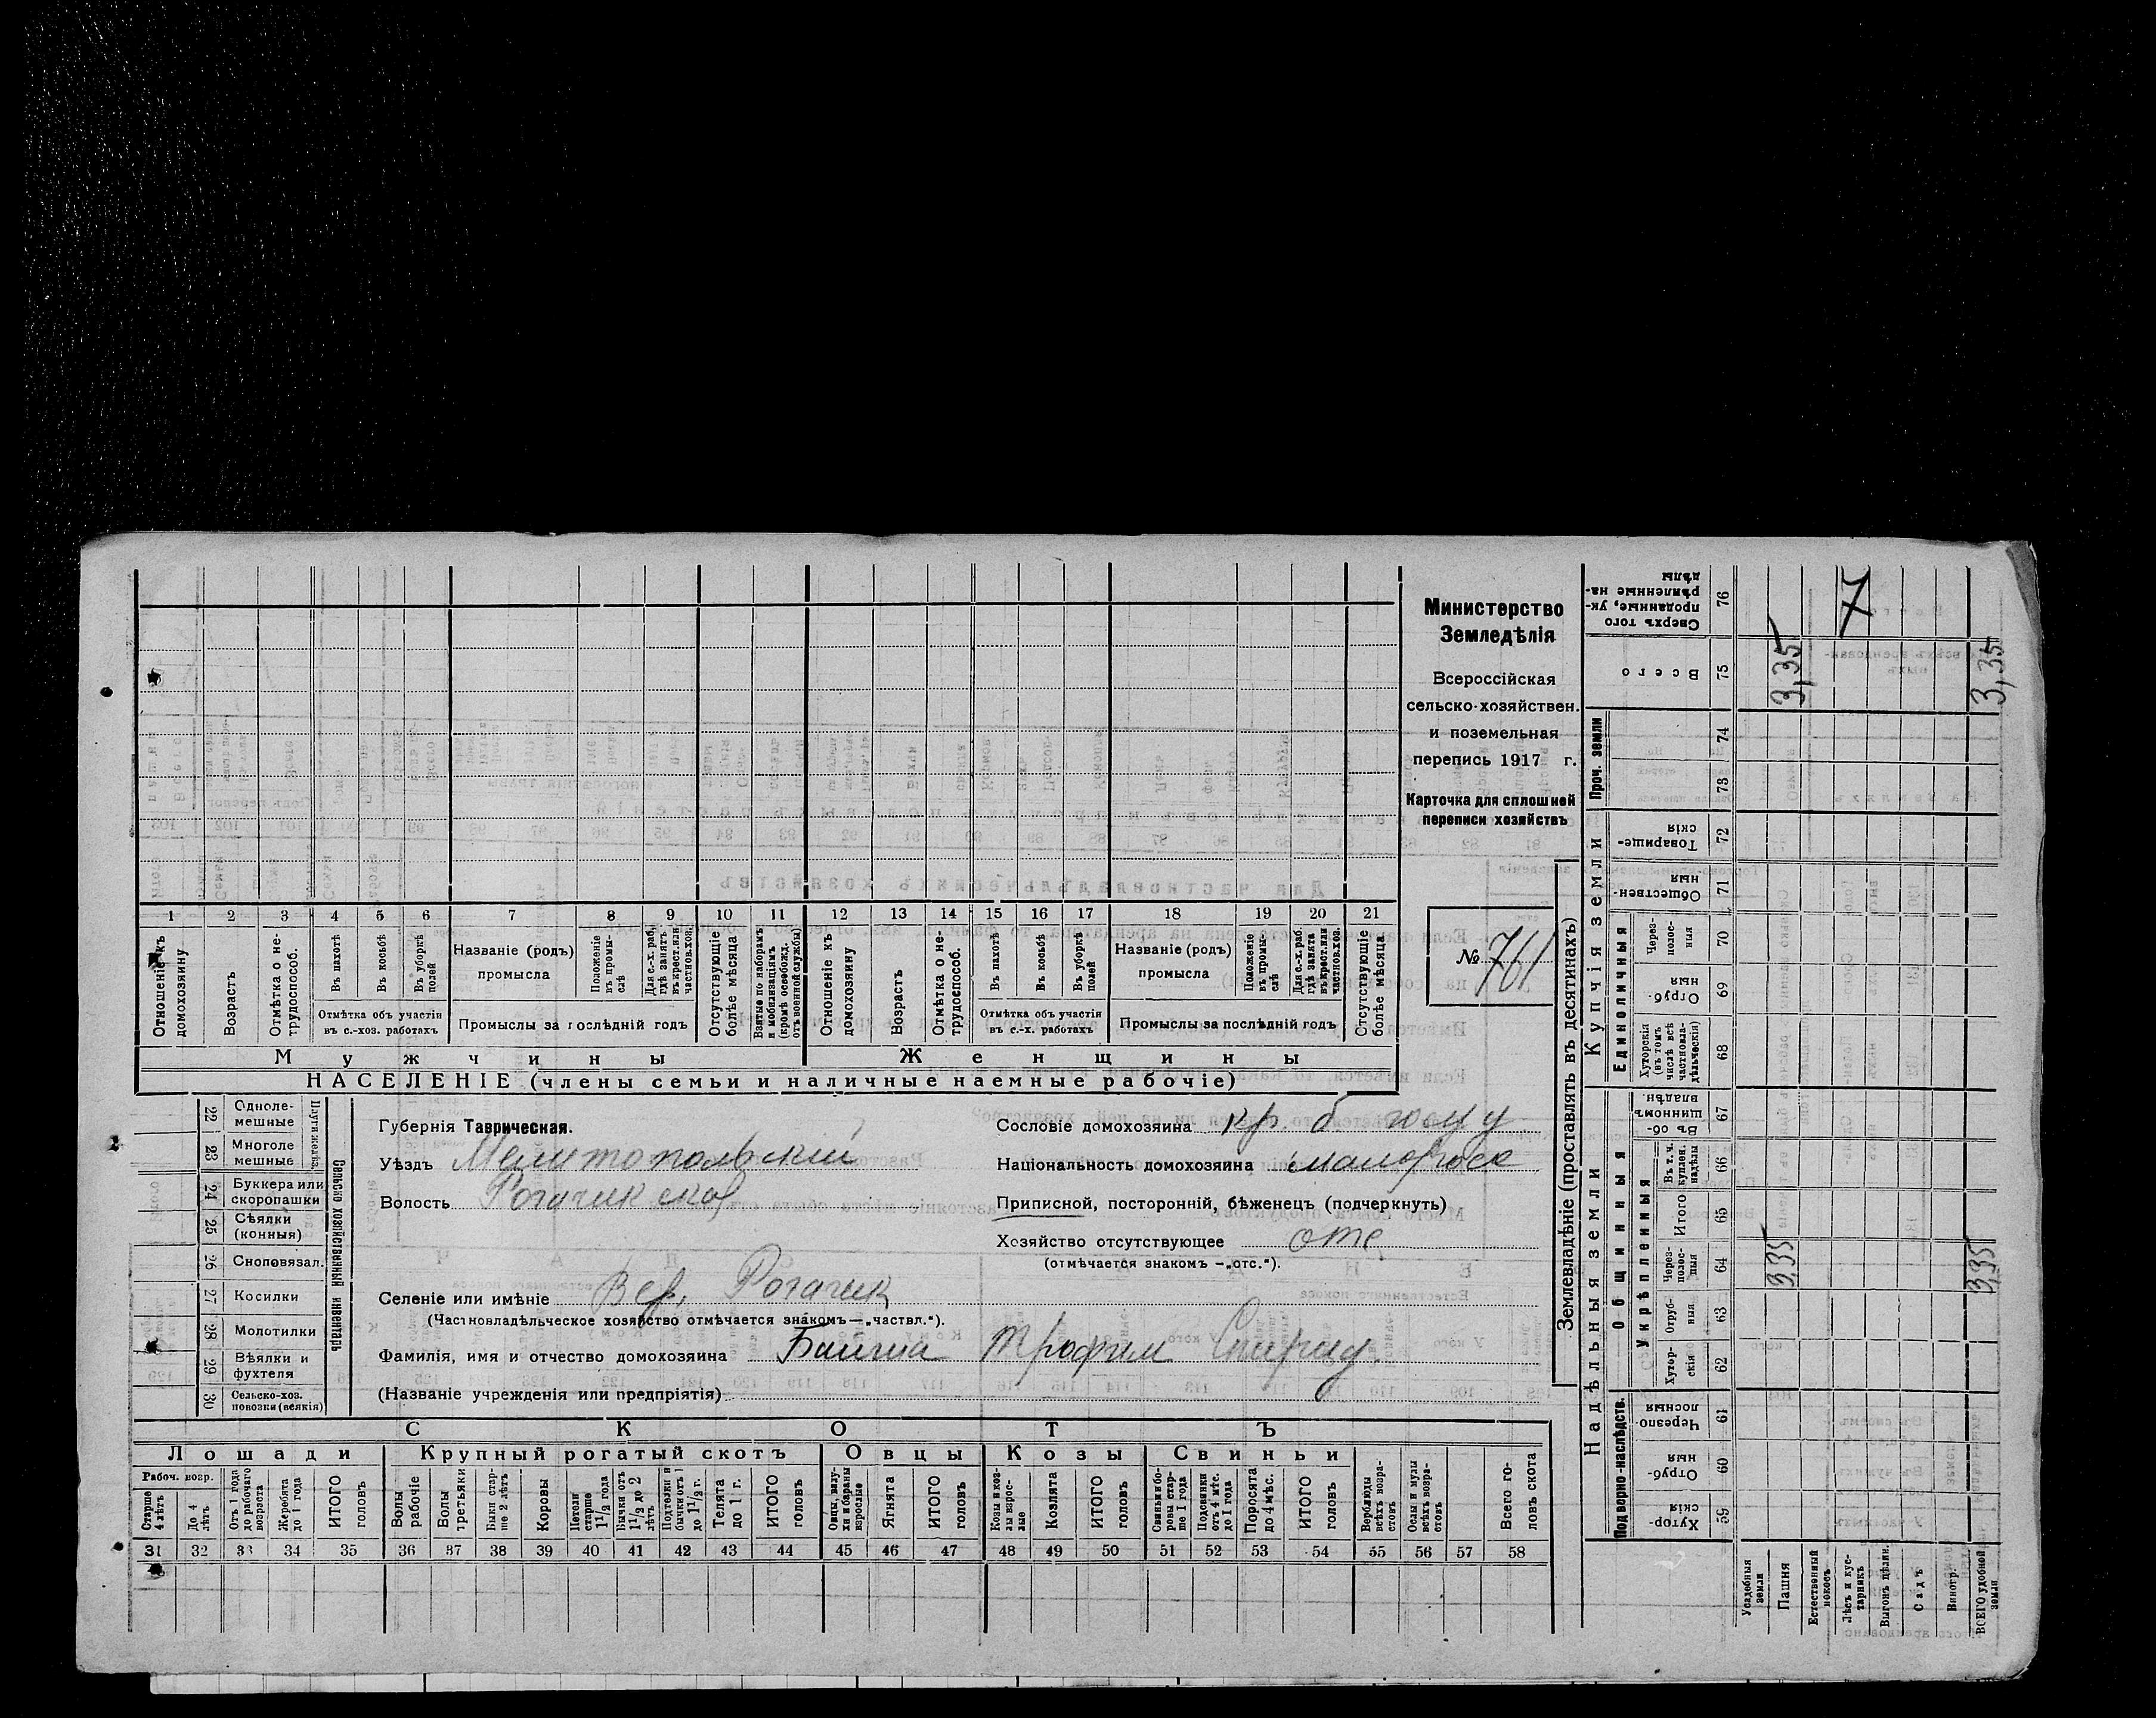 Министерство
Земледѣлія
Всероссійская
сельско-хозяйствен.
и поземельная
перепись 1917 г.
Карточка для сплошной
переписи хозяйствъ
№ 761
1 2 3 4 5 6 7 8 9 10 11 12 13 14 15 16 17 18 19 20 21
Отношеніе къ домохозяину
Возрастъ
Отмѣтка о не-трудоспособ.
Въ пахотѣ
Въ косьбѣ
Въ уборкѣ полей
Отмѣтка объ участіи
въ с.-хоз. работахъ
Названіе (родъ)
промысла
Положеніе въ промы-слѣ
Для с.-х. раб. гдѣ занятъ въ крест. или частнов. хоз.
Промыслы за послѣдній годъ
Отсутствующіе болѣе мѣсяца
Взятые по наборамъ и мобилизаціямъ (кромѣ освобожд. отъ военной службы)
Отношеніе къ домохозяину
Возрастъ
Отмѣтка о не-трудоспособ.
Въ пахотѣ
Въ косьбѣ
Въ уборкѣ полей
Отмѣтка объ участіи
въ с.-х. работахъ
Названіе (родъ)
промысла
Положеніе въ промы-слѣ
Для с.-х. раб. гдѣ занята въ крест. или частнов. хоз.
Промыслы за послѣдній годъ
Отсутствующіе болѣе мѣсяца
Мужчины Женщины
НАСЕЛЕНІЕ (члены семьи и наличные наемные рабочіе)
22 Одноле-мешные
23 Многоле мешные
Плуги желѣз.
24 Буккера или скоропашки
25 Сѣялки (конныя)
26 Сноповязал.
27 Косилки
28 Молотилки
29 Вѣялки и фухтеля
30 Сельско-хоз. повозки (всякія)
Сельско хозяйственный инвентарь
Губернія Таврическая.
Уѣздъ Мелитопольскій
Волость Рогачикская
Сословіе домохозяина кр. б
Національность домохозяина малоросс
Приписной, посторонній, бѣженецъ (подчеркнуть)
Хозяйство отсутствующее отс
(отмѣчается знакомъ —„отс.“).
Селеніе или имѣніе Вер. Рогачик
(Частновладѣльческое хозяйство отмѣчается знакомъ—„частвл.“).
Фамилія, имя и отчество домохозяина Трофим Спирид.
(Названіе учрежденія или предпріятія)
СКОТЪ
Лошади Крупный рогатый скотъ Овцы Козы Свиньи
Рабоч. возр.
Старше 4 лѣтъ
До 4 лѣтъ
Отъ 1 года до рабочаго возраста
Жеребята до 1 года
ИТОГО головъ
Волы рабочіе
Волы третьяки
Быки стар-ше 2 лѣтъ
Коровы
Нетели старше 1 1/2 года
Бычки отъ 1 1/2 до 2 лѣтъ
Подтелки и бычки отъ 1 до 1 1/2 г.
Телята до 1 г.
ИТОГО головъ
Овцы, валу-хи и бараны взрослые
Ягнята
ИТОГО головъ
Козы и коз-лы взрос-лые
Козлята
ИТОГО головъ
Свиньи и бо-ровы стар-ше 1 года
Подсвинки отъ 4 мѣс. до 1 года
Поросята до 4 мѣс.
ИТОГО головъ
Верблюды всѣхъ возра-стовъ
Ослы и мулы всѣхъ возра-стовъ
Всего го-ловъ скота
31 32 33 34 35 36 37 38 39 40 41 42 43 44 45 46 47 48 49 50 51 52 53 54 55 56 57 58
Землевладѣніе (проставлять въ десятинахъ)
Надѣльныя земли
Купчія земли
Проч. земли
Подворно-наслѣдств.
Общинныя
Укрѣпленныя
Единоличныя
Хутор-скія 59
Отруб-ныя 60
Черезпо-лосныя 61
Хутор-скія 62
Отруб-ныя 63
Через-полос-ныя 64 3,35 3,35
Итого 65
Въ т. ч. куплен. надѣлы 66
Въ об-щинномъ владѣн. 67
Хуторскія (въ томъ числѣ всѣ частновла-дѣльческія) 68
Отруб-ныя 69
Через-полос-ныя 70
Обществен-ныя 71
Товарище-скія 72
73
74
Всего 75 3,35 3,35
Сверхъ того проданные, ук-рѣпленные на-дѣлы 76 7
Усадебныя земли
Пашня
Естественный покосъ
Лѣсъ и кус-тарникъ
Выгонъ цѣлин.
Садъ
Виногр.
ВСЕГО удобной земли